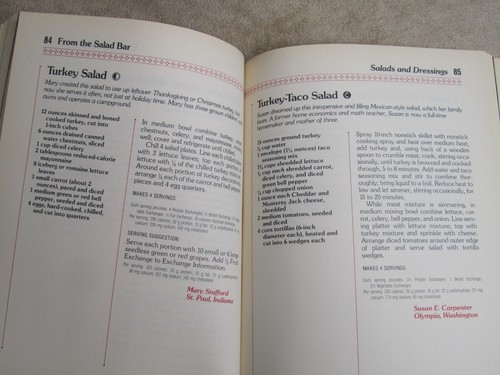 84 From the Salad Bar
Turkey Salad
Mary created this salad to use up leftover Thanksgiving or Christmas turkey, but
now she serves it often, not just at holiday time. Mary has three grown children
owns and operates a campground.
12 ounces skinned and boned
cooked turkey, cut into
1-inch cubes
6 ounces drained canned
water chestnuts, sliced
1 cup diced celery
2 tablespoons reduced-calorie
mayonnaise
8 iceberg or romaine lettuce
leaves
1 small carrot (about 2
ounces), pared and diced
1 medium green or red bell
pepper, seeded and diced
eggs, hard-cooked, chilled,
and cut into quarters
In medium bowl combine turkey, water
chestnuts, celery, and mayonnaise; mix
well; cover and refrigerate until chilled.
Chill 4 salad plates. Line each chilled plate
with 2 lettuce leaves; top each portion of
lettuce with ¼ of the chilled turkey mixture.
Around each portion of turkey mixture
arrange ¼ each of the carrot and bell pepper
pieces and 4 egg quarters.
MAKES 4 SERVINGS
SERVING SUGGESTION
Serve each portion with 10 small or 6 large
seedless green or red grapes. Add ½ Fruit
Exchange to Exchange Information.
Mary Stafford
St. Paul, Indiana
Salads and Dressings 85
Turkey-Taco Salad
Susan dreamed up this inexpensive and filling Mexican-style salad, which her family
A former home economics and math teacher, Susan is now a full-time
homemaker and mother of three.
15 ounces ground turkey
cup water
1 envelope (1¼ ounces) taco
seasoning mix
cups shredded lettuce
cup each shredded carrot,
diced celery, and diced
green bell pepper
cup chopped onion
ounce each Cheddar and
Monterey Jack cheese,
shredded
2 medium tomatoes, seeded
and diced
4 corn tortillas (6-inch
diameter each), heated and
cut into 6 wedges each
Spray 10-inch nonstick skillet with nonstick
cooking spray and heat over medium heat;
add turkey and, using back of a wooden
spoon to crumble meat, cook, stirring occa-
sionally, until turkey is browned and cooked
through, 5 to 8 minutes. Add water and taco
seasoning mix and stir to combine thor-
oughly; bring liquid to a boil. Reduce heat to
low and let simmer, stirring occasionally, for
15 to 20 minutes.
While meat mixture is simmering, in
medium mixing bowl combine lettuce, car-
rot, celery, bell pepper, and onion. Line serv-
ing platter with lettuce mixture, top with
turkey mixture and sprinkle with cheese.
Arrange diced tomatoes around outer edge
of platter and serve salad with tortilla
wedges.
MAKES 4 SERVINGS
Susan E. Carpenter
Olympia, Washington